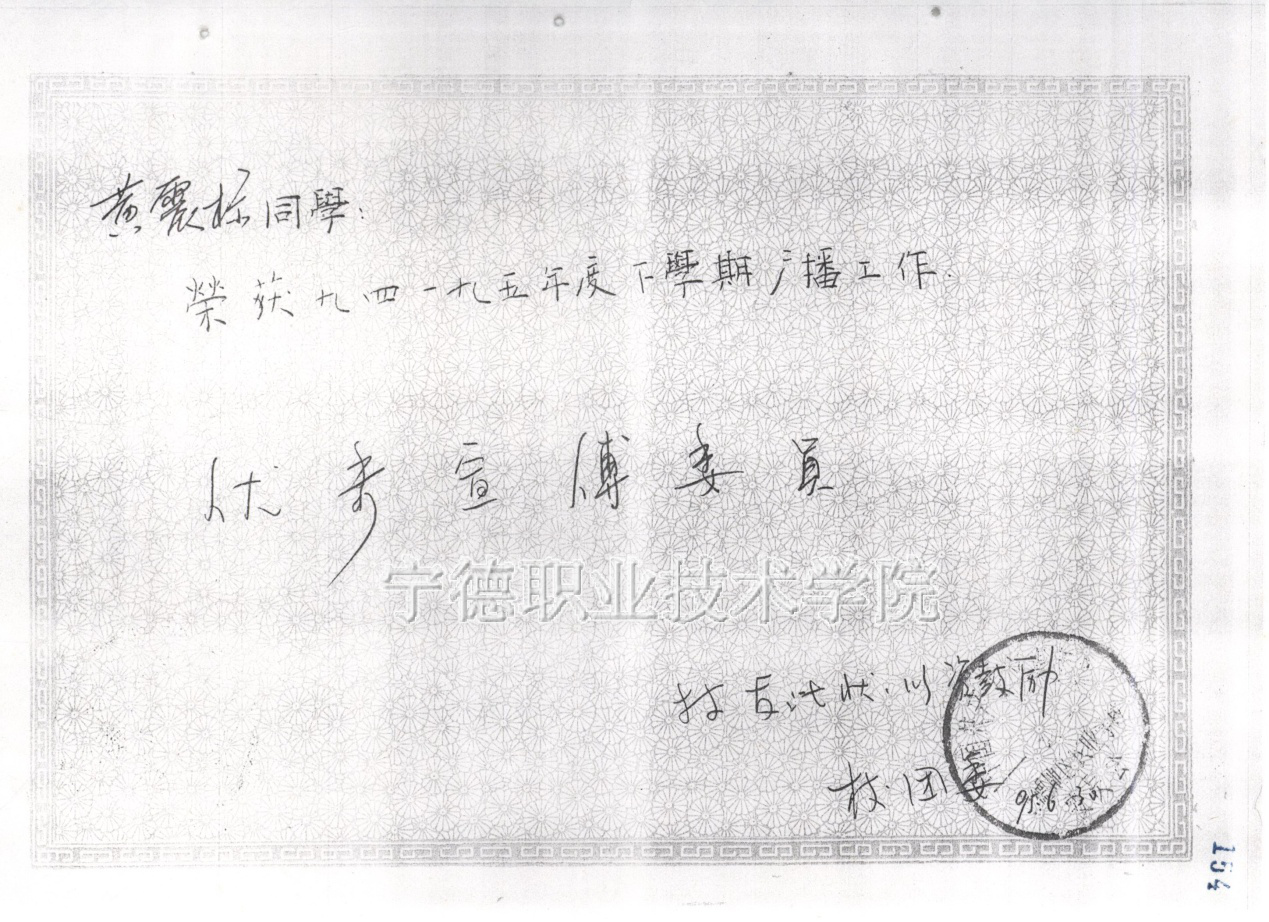 黄震标同學：
榮获九四一九五年度下學期广播工作.
优秀宣傳委員
宁德职业技术学院
特发此状.以资鼓励.
校团委
95.6
154